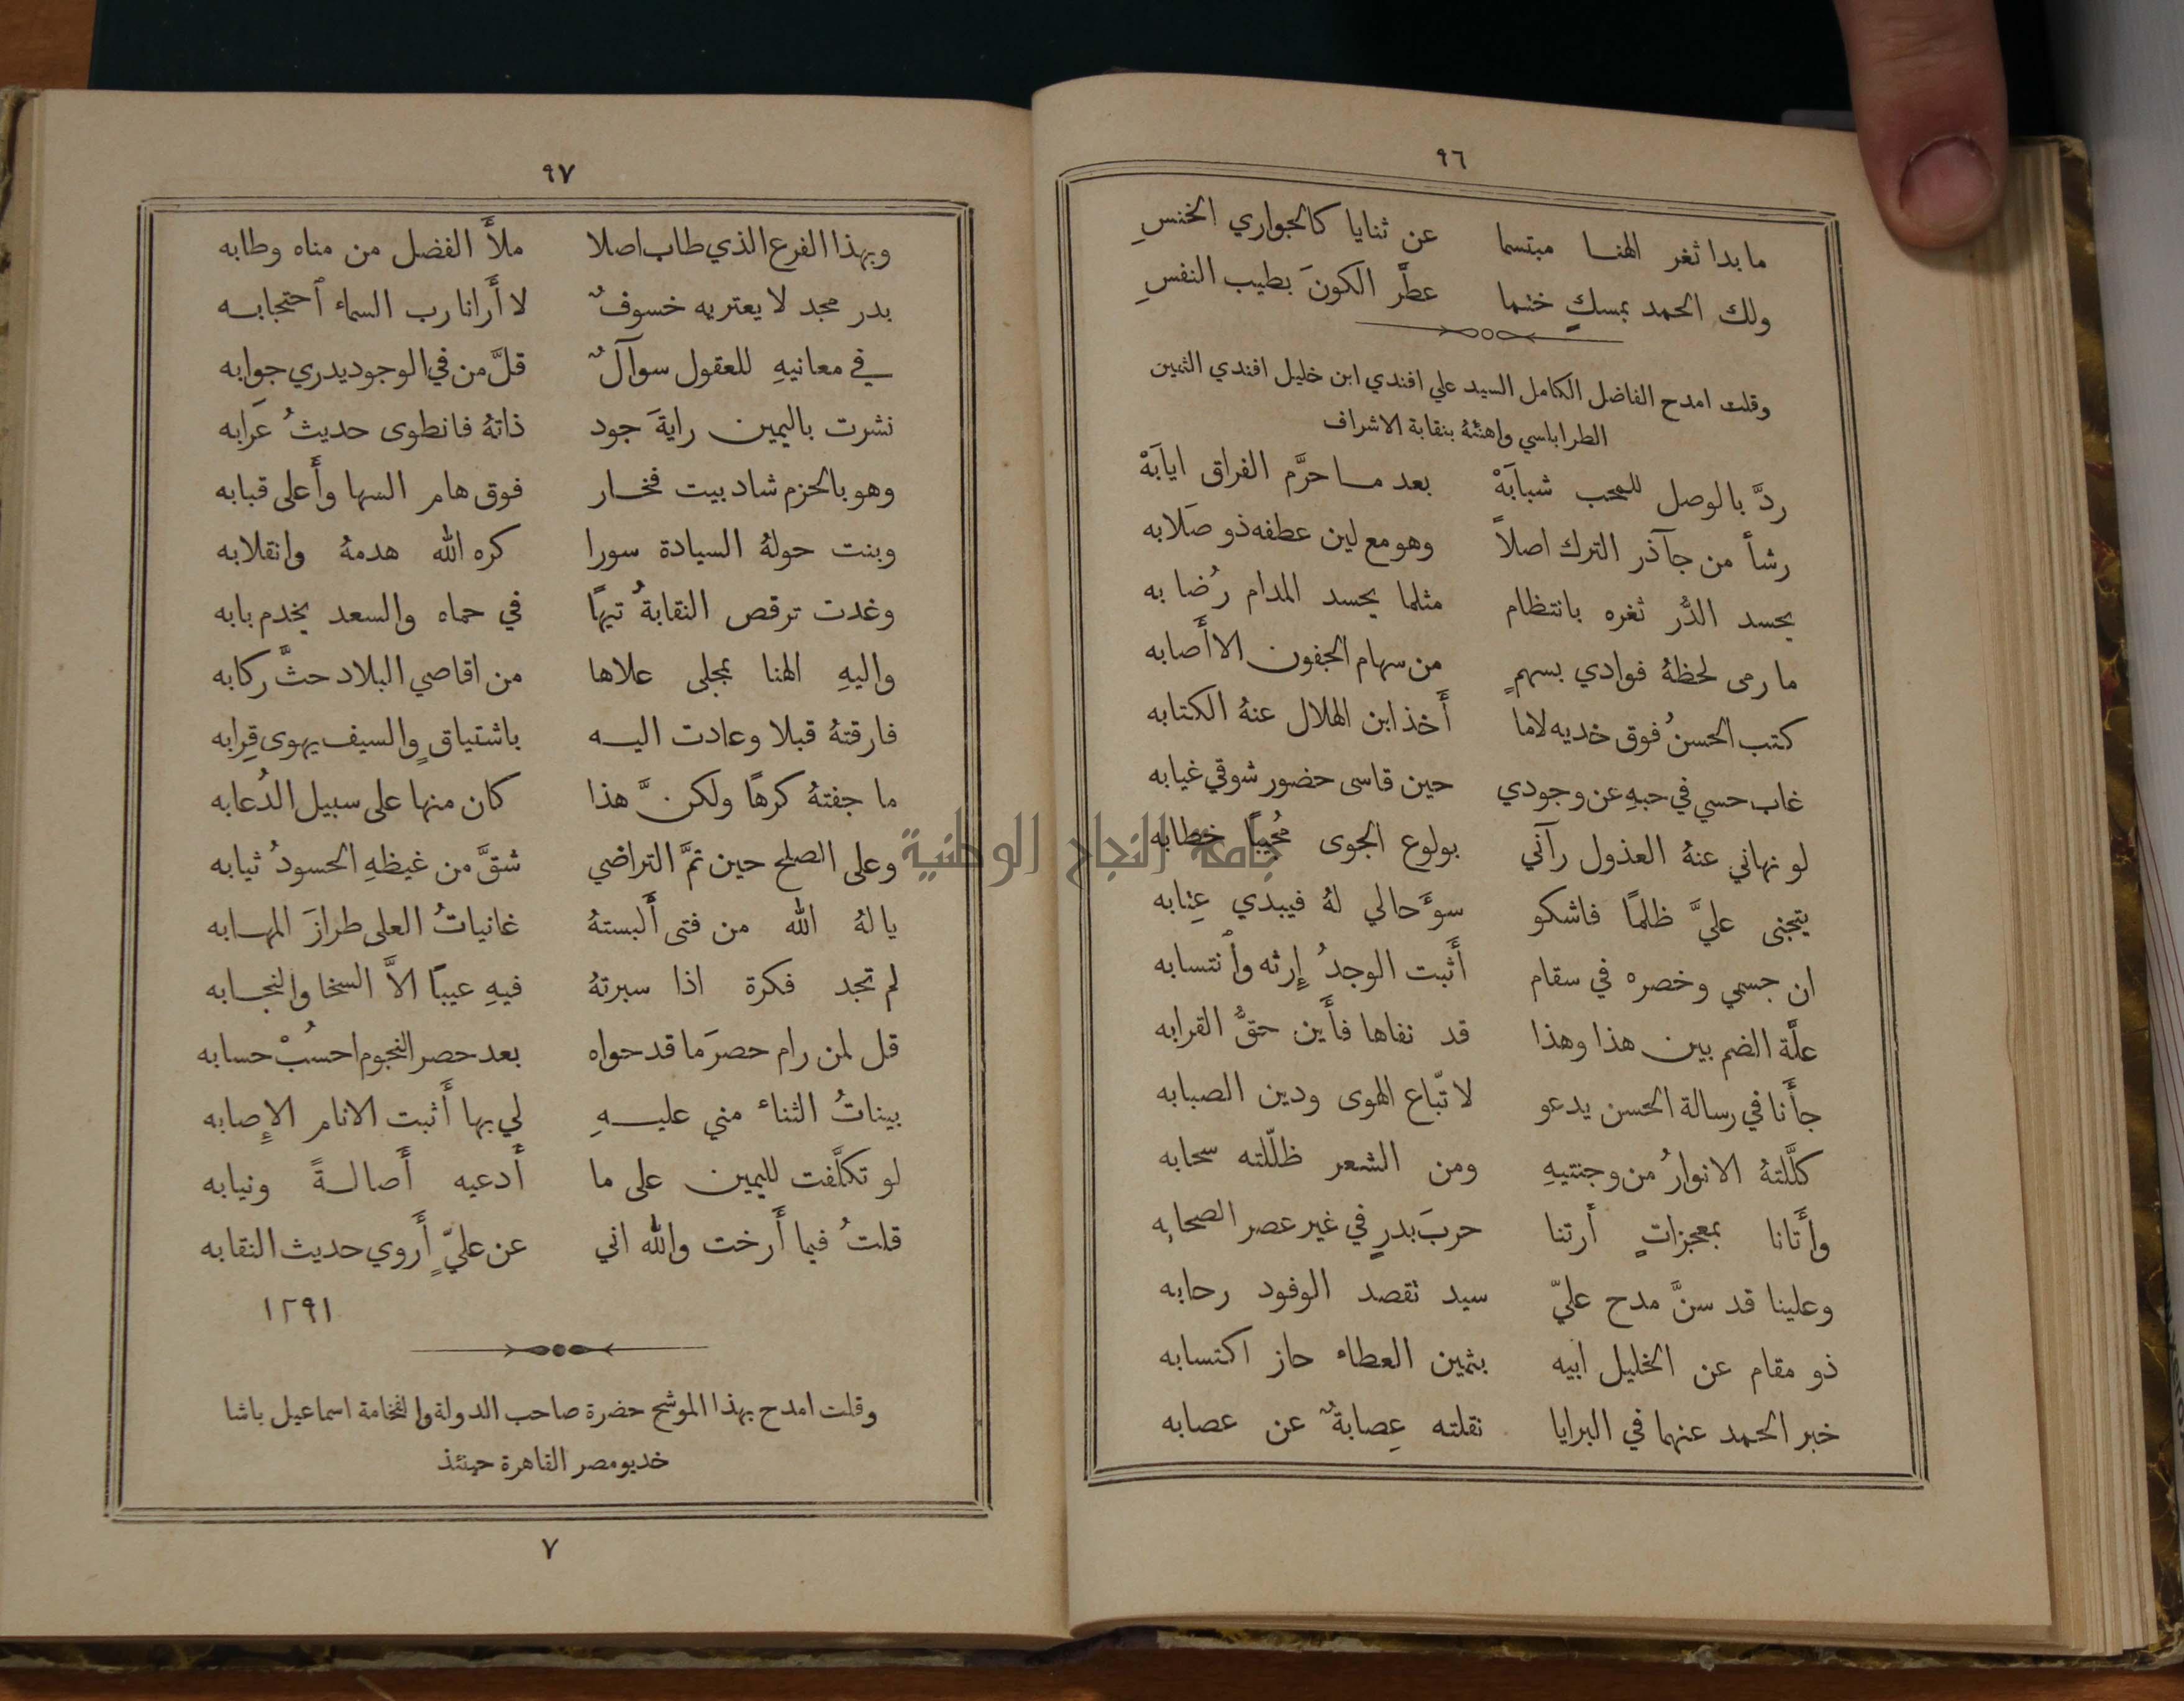 ٩٦
ما بدا ثغر الهنا مبتسما عن ثنايا كالجواري الخنسِ
ولك الحمد بمسكٍ ختما عطَّر الكونَ بطيب النفسِ
وقلت امدح الفاضل الكامل السيد علي افندي ابن خليل افندي الثمين
الطرابلسي واهنئهُ بنقابة الاشراف
ردَّ بالوصل للمحب شبابَهْ بعد ما حرَّم الفراق ايابَهْ
رشأ من جآذر الترك اصلاً وهو مع لين عطفه ذو صَلابه
يحسد الدُّر ثغره بانتظام مثلما يحسد المدام رُضابه
ما رمى لحظهُ فوادي بسهمٍ من سهام الجفون الا أَصابه
كتب الحسنُ فوق خديه لاما أَخذ ابن الهلال عنهُ الكتابه
غاب حسي في حبهِ عن وجودي حين قاسى حضور شوقي غيابه
لو نهاني عنهُ العذول رآني بولوع الجوى مُجيبًا خطابه
يتجنى عليَّ ظلمًا فاشكو سوءَ حالي لهُ فيبدي عِتابه
ان جسمي وخصره في سقام أَثبت الوجدُ إِرثه وانتسابه
علَّة الضم بين هذا وهذا قد نفاها فأَين حقُّ القرابه
جأَنا في رسالة الحسن يدعو لاتّباع الهوى ودين الصبابه
كلَّلتهُ الانوارُ من وجنتيهِ ومن الشعر ظلّلته سحابه
وأَتانا بمعجزاتٍ أَرتنا حربَ بدرٍ في غير عصر الصحابه
وعلينا قد سنَّ مدح عليّ سيد تقصد الوفود رحابه
ذو مقام عن الخليل ابيه بثمين العطاء حاز اكتسابه
خبر الحمد عنهما في البرايا نقلته عِصابةٌ عن عصابه
٩٧
وبهذا الفرع الذي طاب اصلا ملأَ الفضل من مناه وطابه
بدر مجد لا يعتريه خسوفٌ لا أَرانا رب السماء احتجابه
في معانيهِ للعقول سوآلٌ قلَّ من في الوجود يدري جوابه
نشرت باليمين رايةَ جود ذاتهُ فانطوى حديثُ عَرابه
وهو بالحزم شاد بيت فخار فوق هام السها وأَعلى قبابه
وبنت حولهُ السيادة سورا كره الله هدمهُ وانقلابه
وغدت ترقص النقابةُ تيهًا في حماه والسعد يخدم بابه
واليهِ الهنا بمجلى علاها من اقاصي البلاد حثَّ ركابه
فارقتهُ قبلا وعادت اليه باشتياقٍ والسيف يهوى قِرابه
ما جفتهُ كرهًا ولكنَّ هذا كان منها على سبيل الدُعابه
وعلى الصلح حين تمَّ التراضي شقَّ من غيظهِ الحسودُ ثيابه
يا لهُ الله من فتى أَلبستهُ غانياتُ العلى طرازَ المهابه
لم تجد فكرة اذا سبرتهُ فيهِ عيبًا الاَّ السخا والنجابه
قل لمن رام حصرَ ما قد حواه بعد حصر النجوم احسُبْ حسابه
بيناتُ الثناء مني عليهِ لي بها أَثبت الانام الإِصابه
لو تكلَّفت لليمين على ما أَدعيه أَصالةً ونيابه
قلتُ فيما أَرخت والله اني عن عليٍّ أَروي حديث النقابه
١٢٩١
وقلت امدح بهذا الموشح حضرة صاحب الدولة والفخامة اسماعيل باشا
خديو مصر القاهرة حينئذ
٧
جامعة النجاح الوطنية